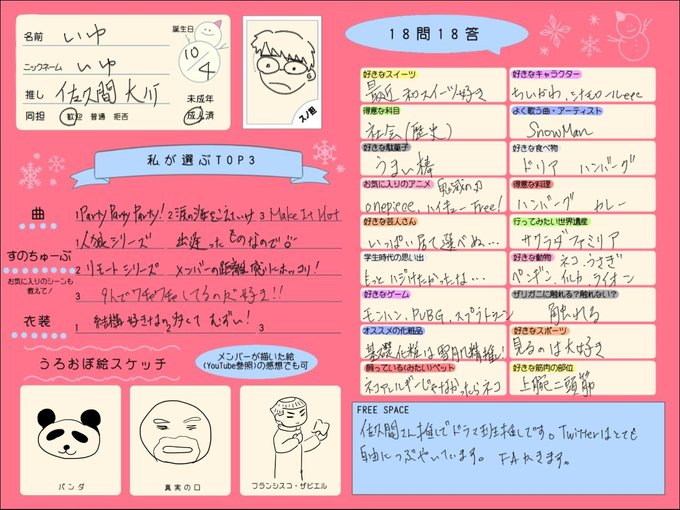 名前 いゆ
誕生日
10/4
ニックネーム いゆ
推し 佐久間大介
未成年
同担 歓迎 普通 拒否
成人済
スノ担
私が選ぶTOP3
曲
1 Party Party Party! 2 涙の海をこえていけ 3 Make It Hot
すのちゅーぶ
お気に入りのシーンも教えて!
1 人狼シリーズ 出逢ったものなので
2 リモートシリーズ メンバーの距離感りにホッコリ!
3 9人でワチャワチャしてるの大好き!!
衣装
1 結構好きなの多くて むずい! 3
うろおぼ絵スケッチ
メンバーが描いた絵
(YouTube参照)の感想でも可
パンダ
真実の口
フランシスコ・ザビエル
18問18答
好きなスイーツ
最近 和スイーツ好き
好きなキャラクター
ちいかわ、シナモロールetc
得意な科目
社会(歴史)
よく歌う曲・アーティスト
SnowMan
好きな駄菓子
うまい棒
好きな食べ物
ドリア ハンバーグ
お気に入りのアニメ 鬼滅の刃
onepiece、ハイキュー Free!
得意な料理
ハンバーグ カレー
好きな芸人さん
いっぱい居て選べぬ…
行ってみたい世界遺産
サグラダファミリア
学生時代の思い出
もっとハジけたかったな…
好きな動物 ネコ、うさぎ
ペンギン、イルカ、ライオン
好きなゲーム
モンハン、PUBG、スプラトゥーン
ザリガニに触れる?触れない?
触れる
オススメの化粧品
基礎化粧は雪肌精推し!
好きなスポーツ
見るのは大好き
飼っている(みたい)ペット
ネコアレルギーじゃなかったらネコ
好きな筋肉の部位
上腕二頭筋
FREE SPACE
佐久間さん推しでドラマ班推しです。Twitterはとても
自由につぶやいています。 FAかきます。